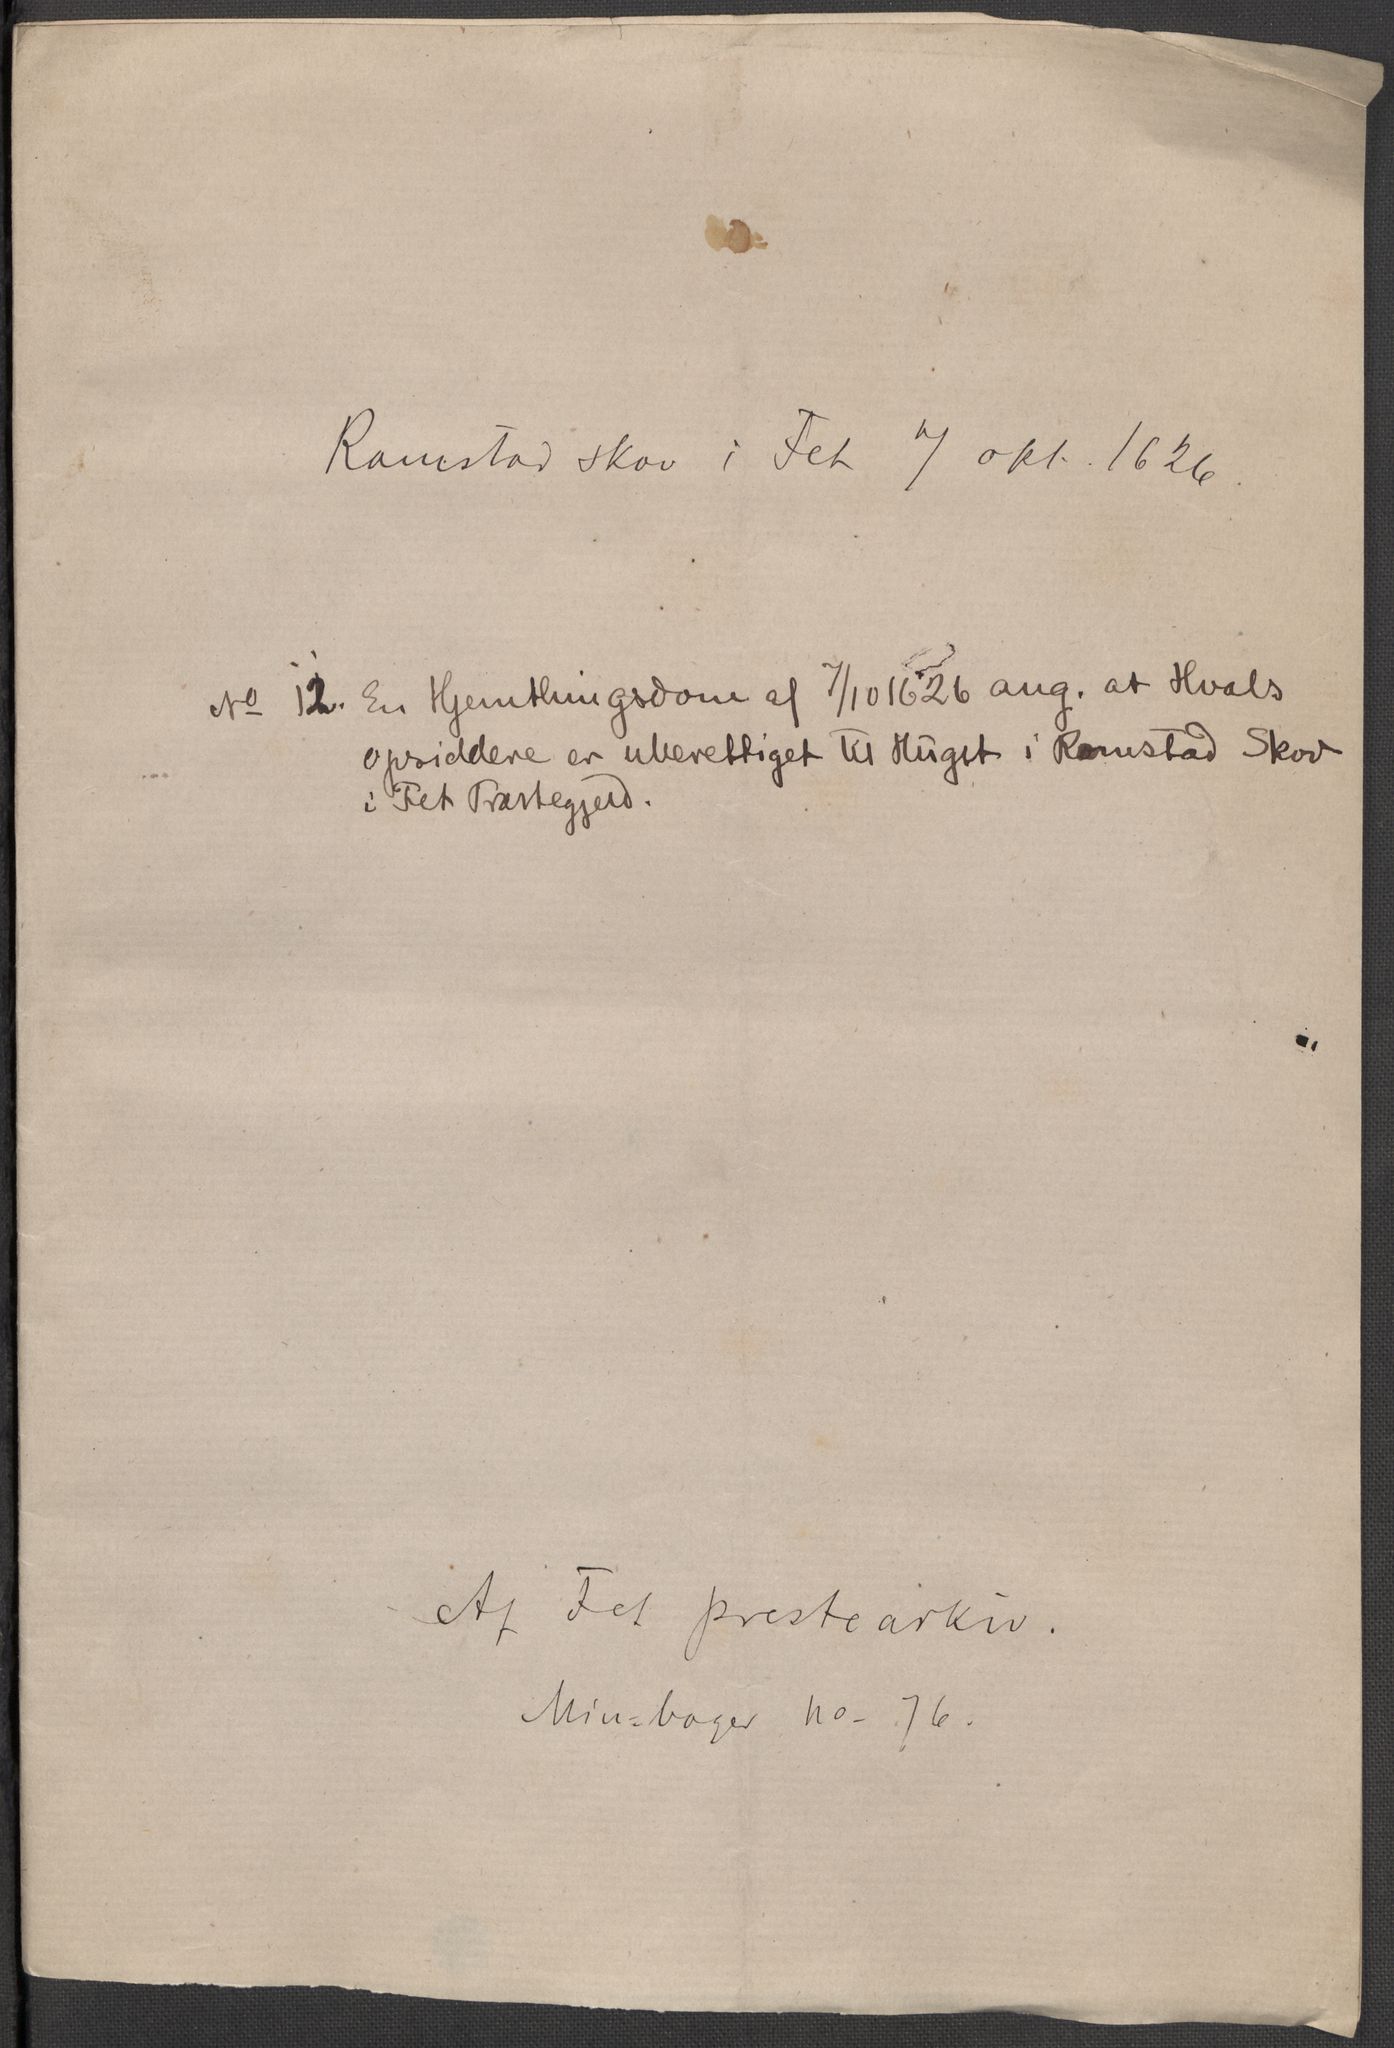 Ramstad skov i Fet 7/ okt. 1626.
No 12. En Hjemthingsdom af 7/10 1626 ang. at Hvals
opsiddere er uberettiget til Hugst i Ramstad Skov
i Fet Præstegjeld.
Af Fet prestearkiv.
Min=bøger no- 76.